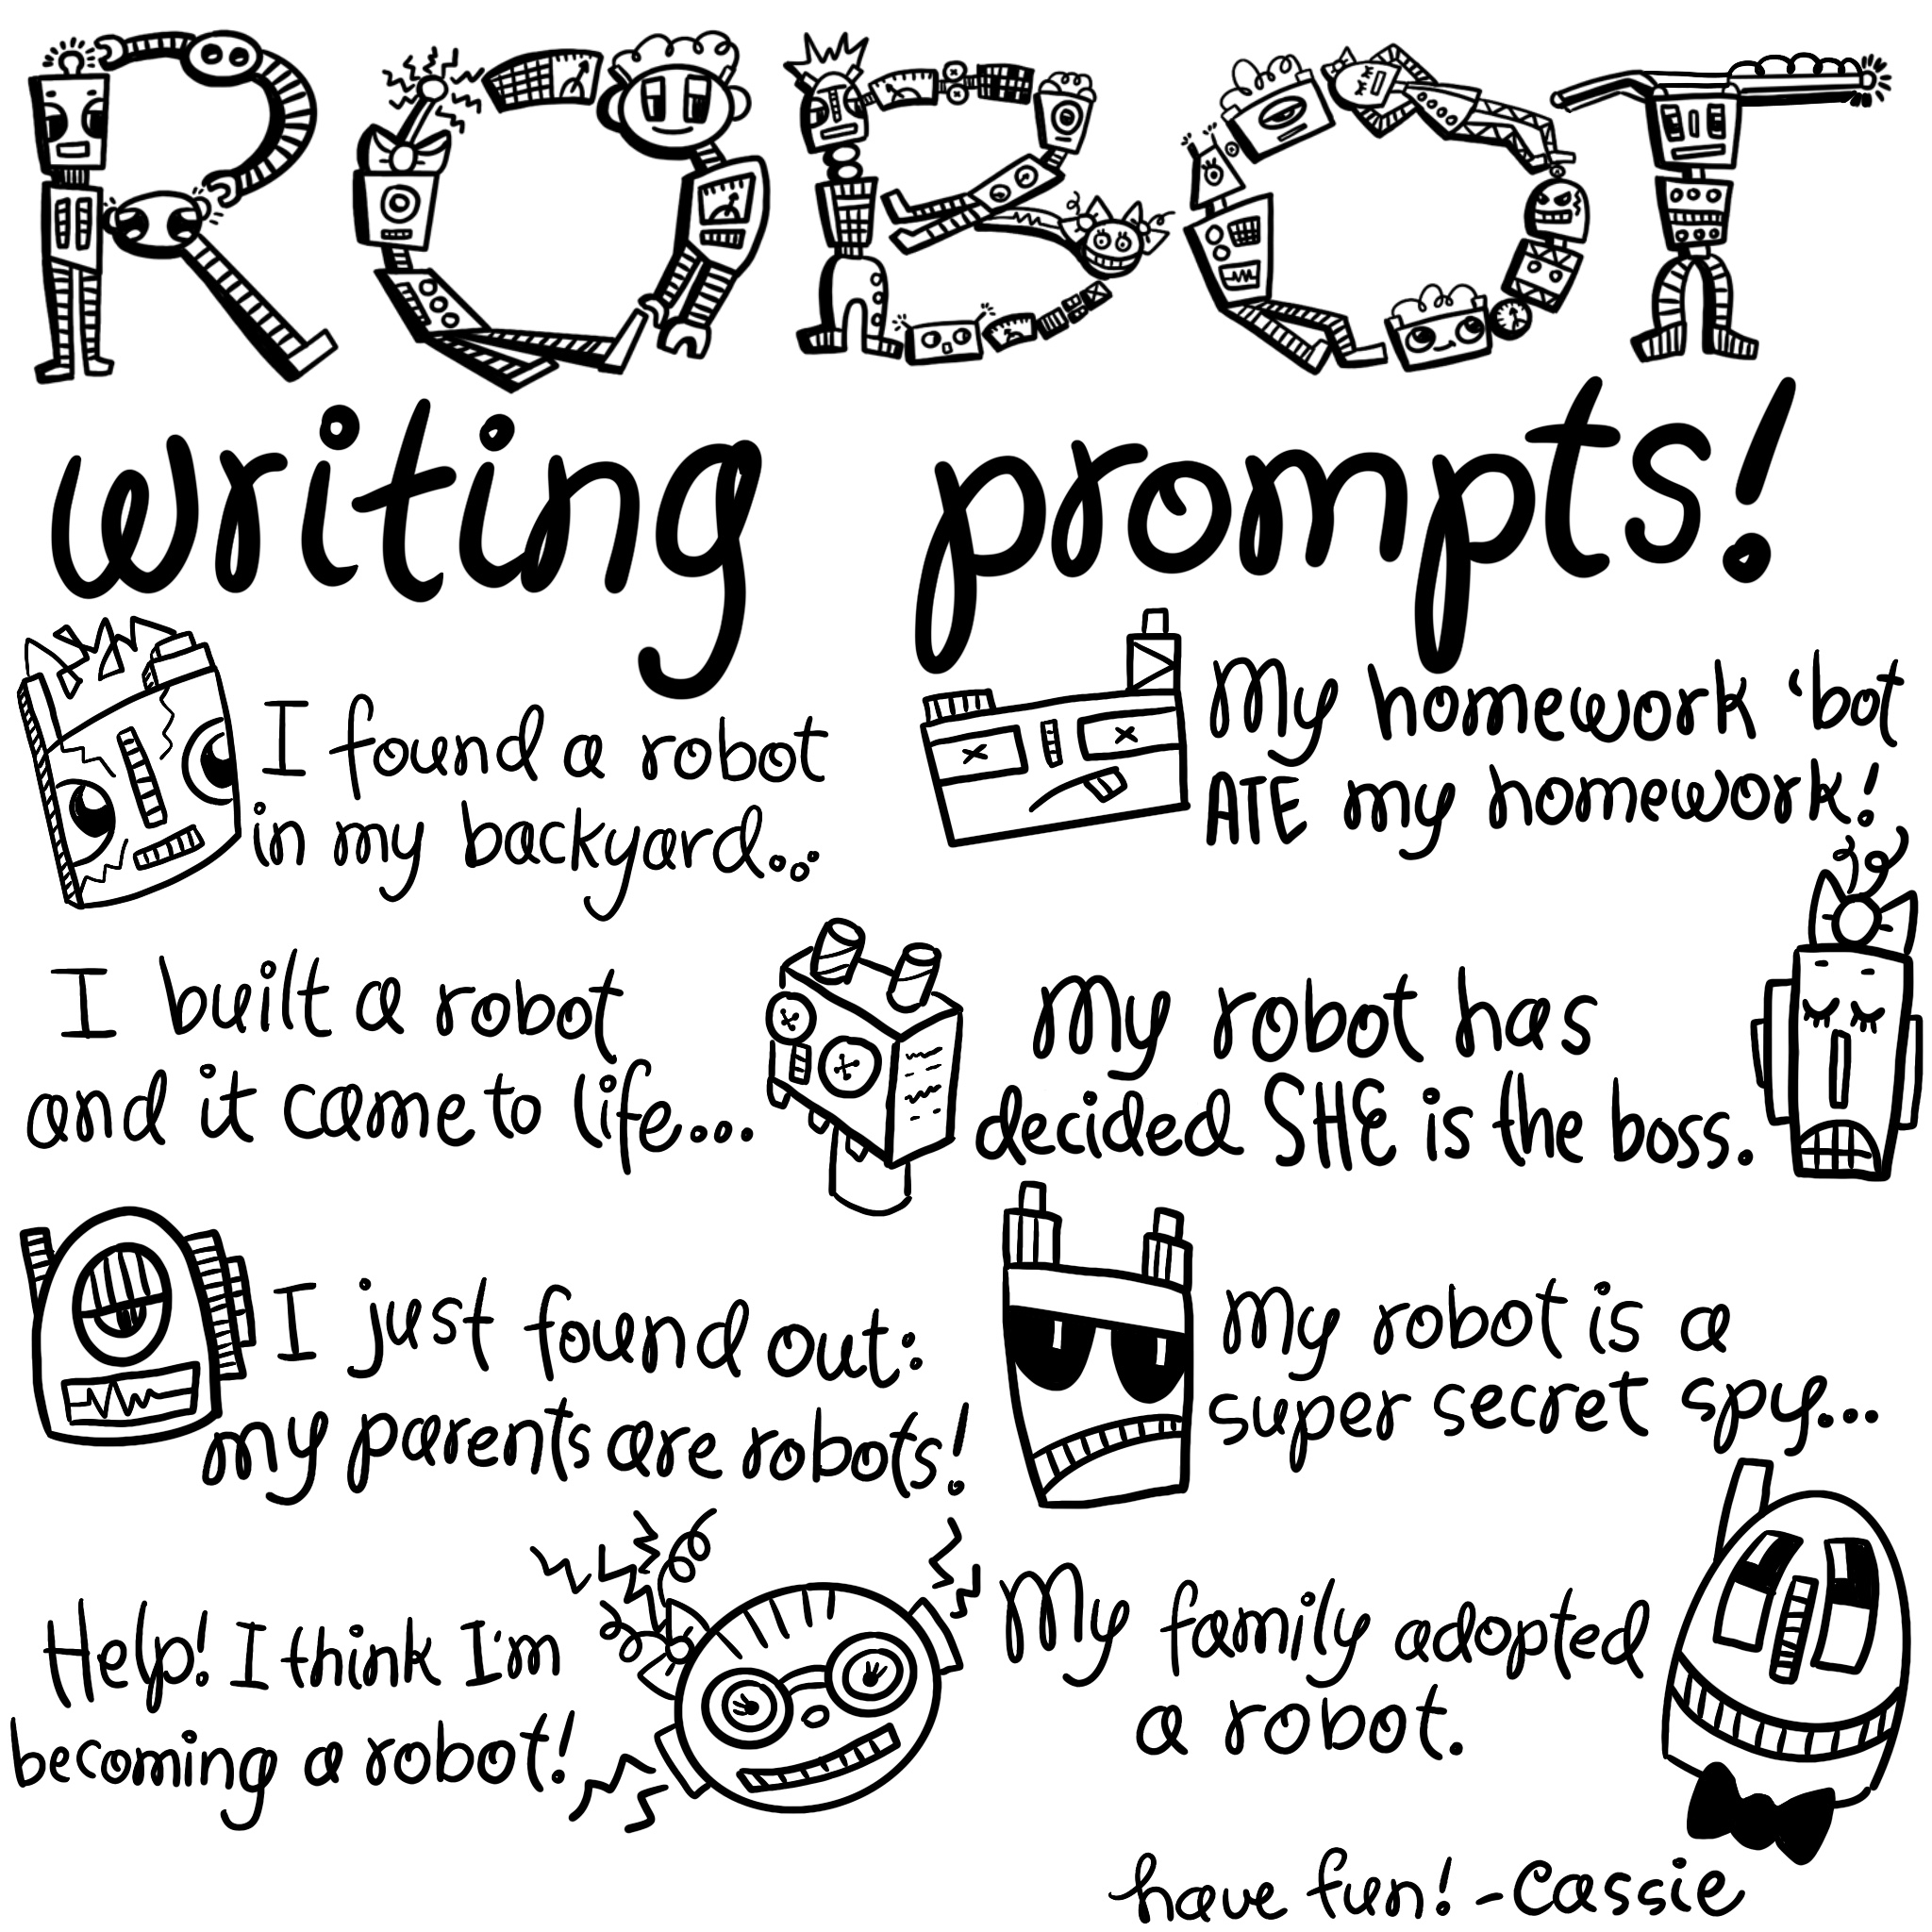 ROBOT
writing prompts!
I found a robot
in my backyard...
My homework 'bot
ATE my homework!
I built a robot
and it came to life...
My robot has
decided SHE is the boss.
I just found out:
my parents are robots!
My robot is a
super secret spy...
Help! I think I'm
becoming a robot!
My family adopted
a robot.
have fun! -Cassie